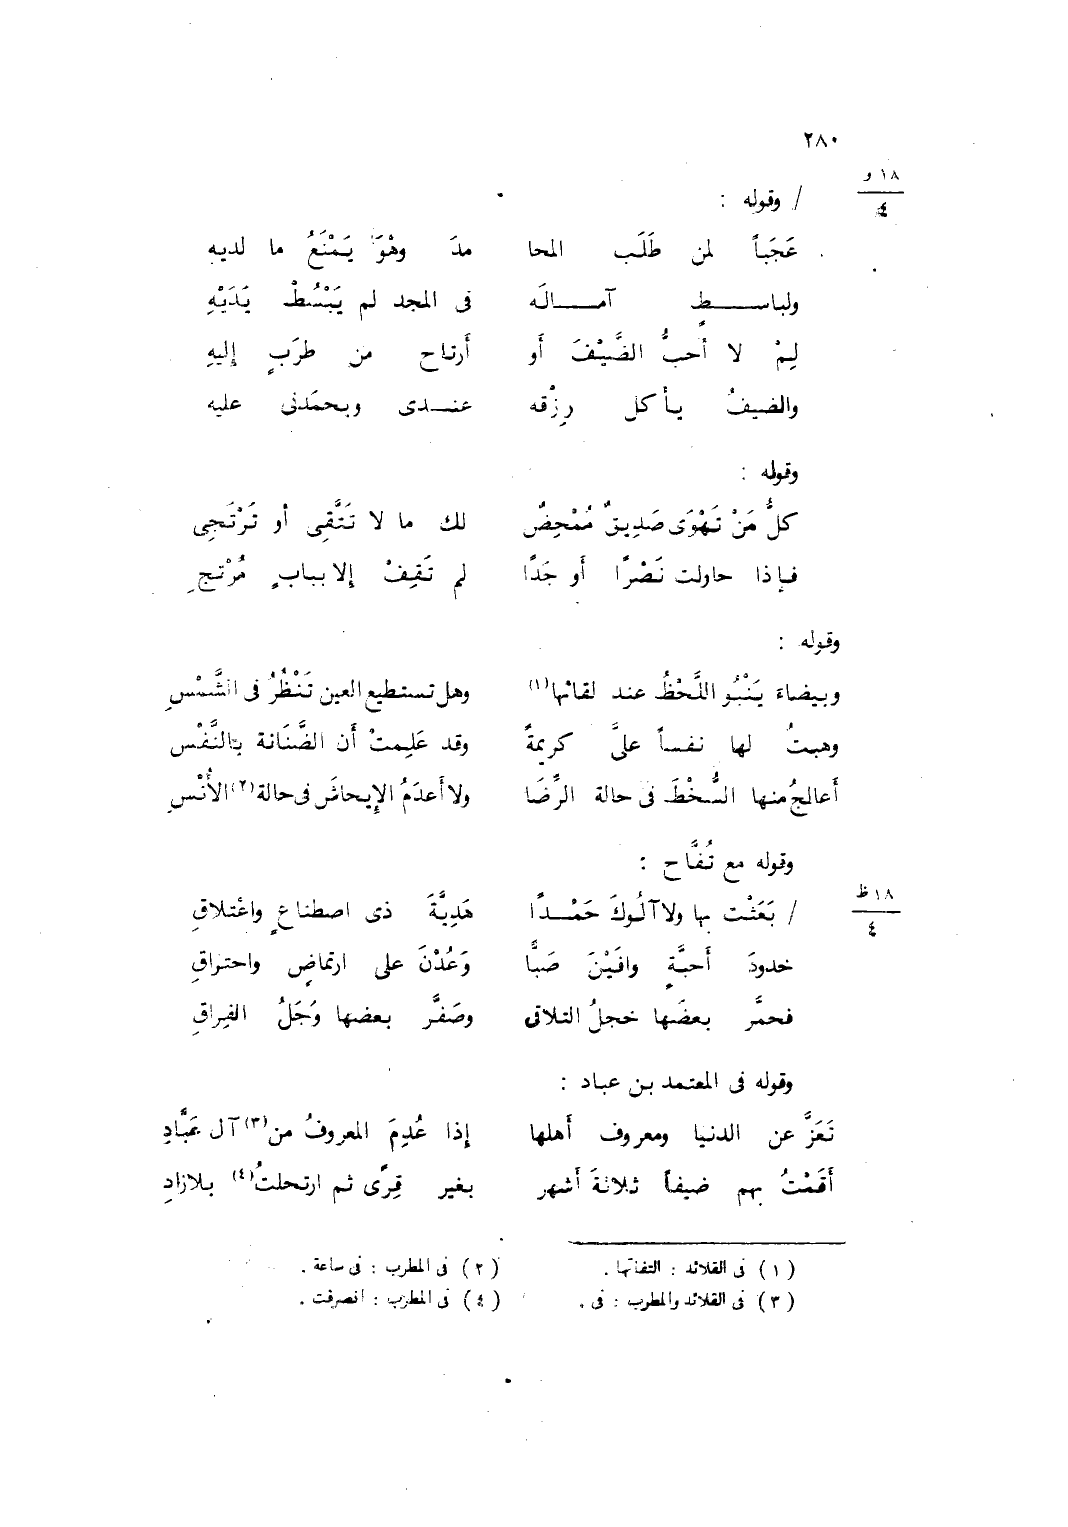 ٢٨٠
١٨ و
٤
/ وقوله :
عَجَباً لمن طَلَب المحا مدَ وهْوَ يَمْنَعُ ما لديه
ولباســطٍ آمــالَه فى المجد لم يَبْسُطْ يَدَيْهِ
لِمْ لا أُحبُّ الضَّيْفَ أَو أَرتاح من طرَبٍ إليهِ
والضيفُ يأكل رِزْقه عنــدى ويحمَدنى عليه
وقوله :
كلُّ مَنْ تَهْوَى صَدِيقٌ مُمْحِضٌ لك ما لا تَتَّقِى أو تَرْتَجِى
فإذا حاولت نَصْرًا أو جَدًا لم تَقِفْ إلا ببابٍ مُرْتَجِ
وقوله :
وبيضاء يَنْبُو اللَّحْظُ عند لقائها(١) وهل تستطيع العين تَنْظُرُ فى الشَّمْسِ
وهبتُ لها نفساً علىَّ كريمةً وقد عَلِمتْ أن الضَّنَانة بالنَّفْسِ
أعالجُ منها السُّخْطَ فى حالة الرِّضَا ولا أَعدَمُ الإيحاشَ فى حالة(٢) الأُنْسِ
وقوله مع تُفَّاح :
١٨ ظ
٤
/ بَعَثْت بها ولا آلُوكَ حَمْــدًا هَدِيَّةَ ذى اصطناعٍ واعْتلاقِ
خدودَ أَحبَّةٍ وافَيْنَ صَبًّا وَعُدْنَ على ارتماضٍ واحتراقِ
فحمَّر بعضَها خجلُ التلاقى وصَفَّر بعضها وَجَلُ الفِراقِ
وقوله فى المعتمد بن عباد :
تَعَزَّ عن الدنيا ومعروف أَهلها إذا عُدِمَ المعروفُ من(٣) آل عَبَّادِ
أَقَمْتُ بهم ضيفاً ثلاثةَ أَشهر بغير قِرًى ثم ارتحلتُ(٤) بلا زادِ
(١) فى القلائد : التفاتها .
(٢) فى المطرب : فى ساعة .
(٣) فى القلائد والمطرب : فى .
(٤) فى المطرب : انصرفت .